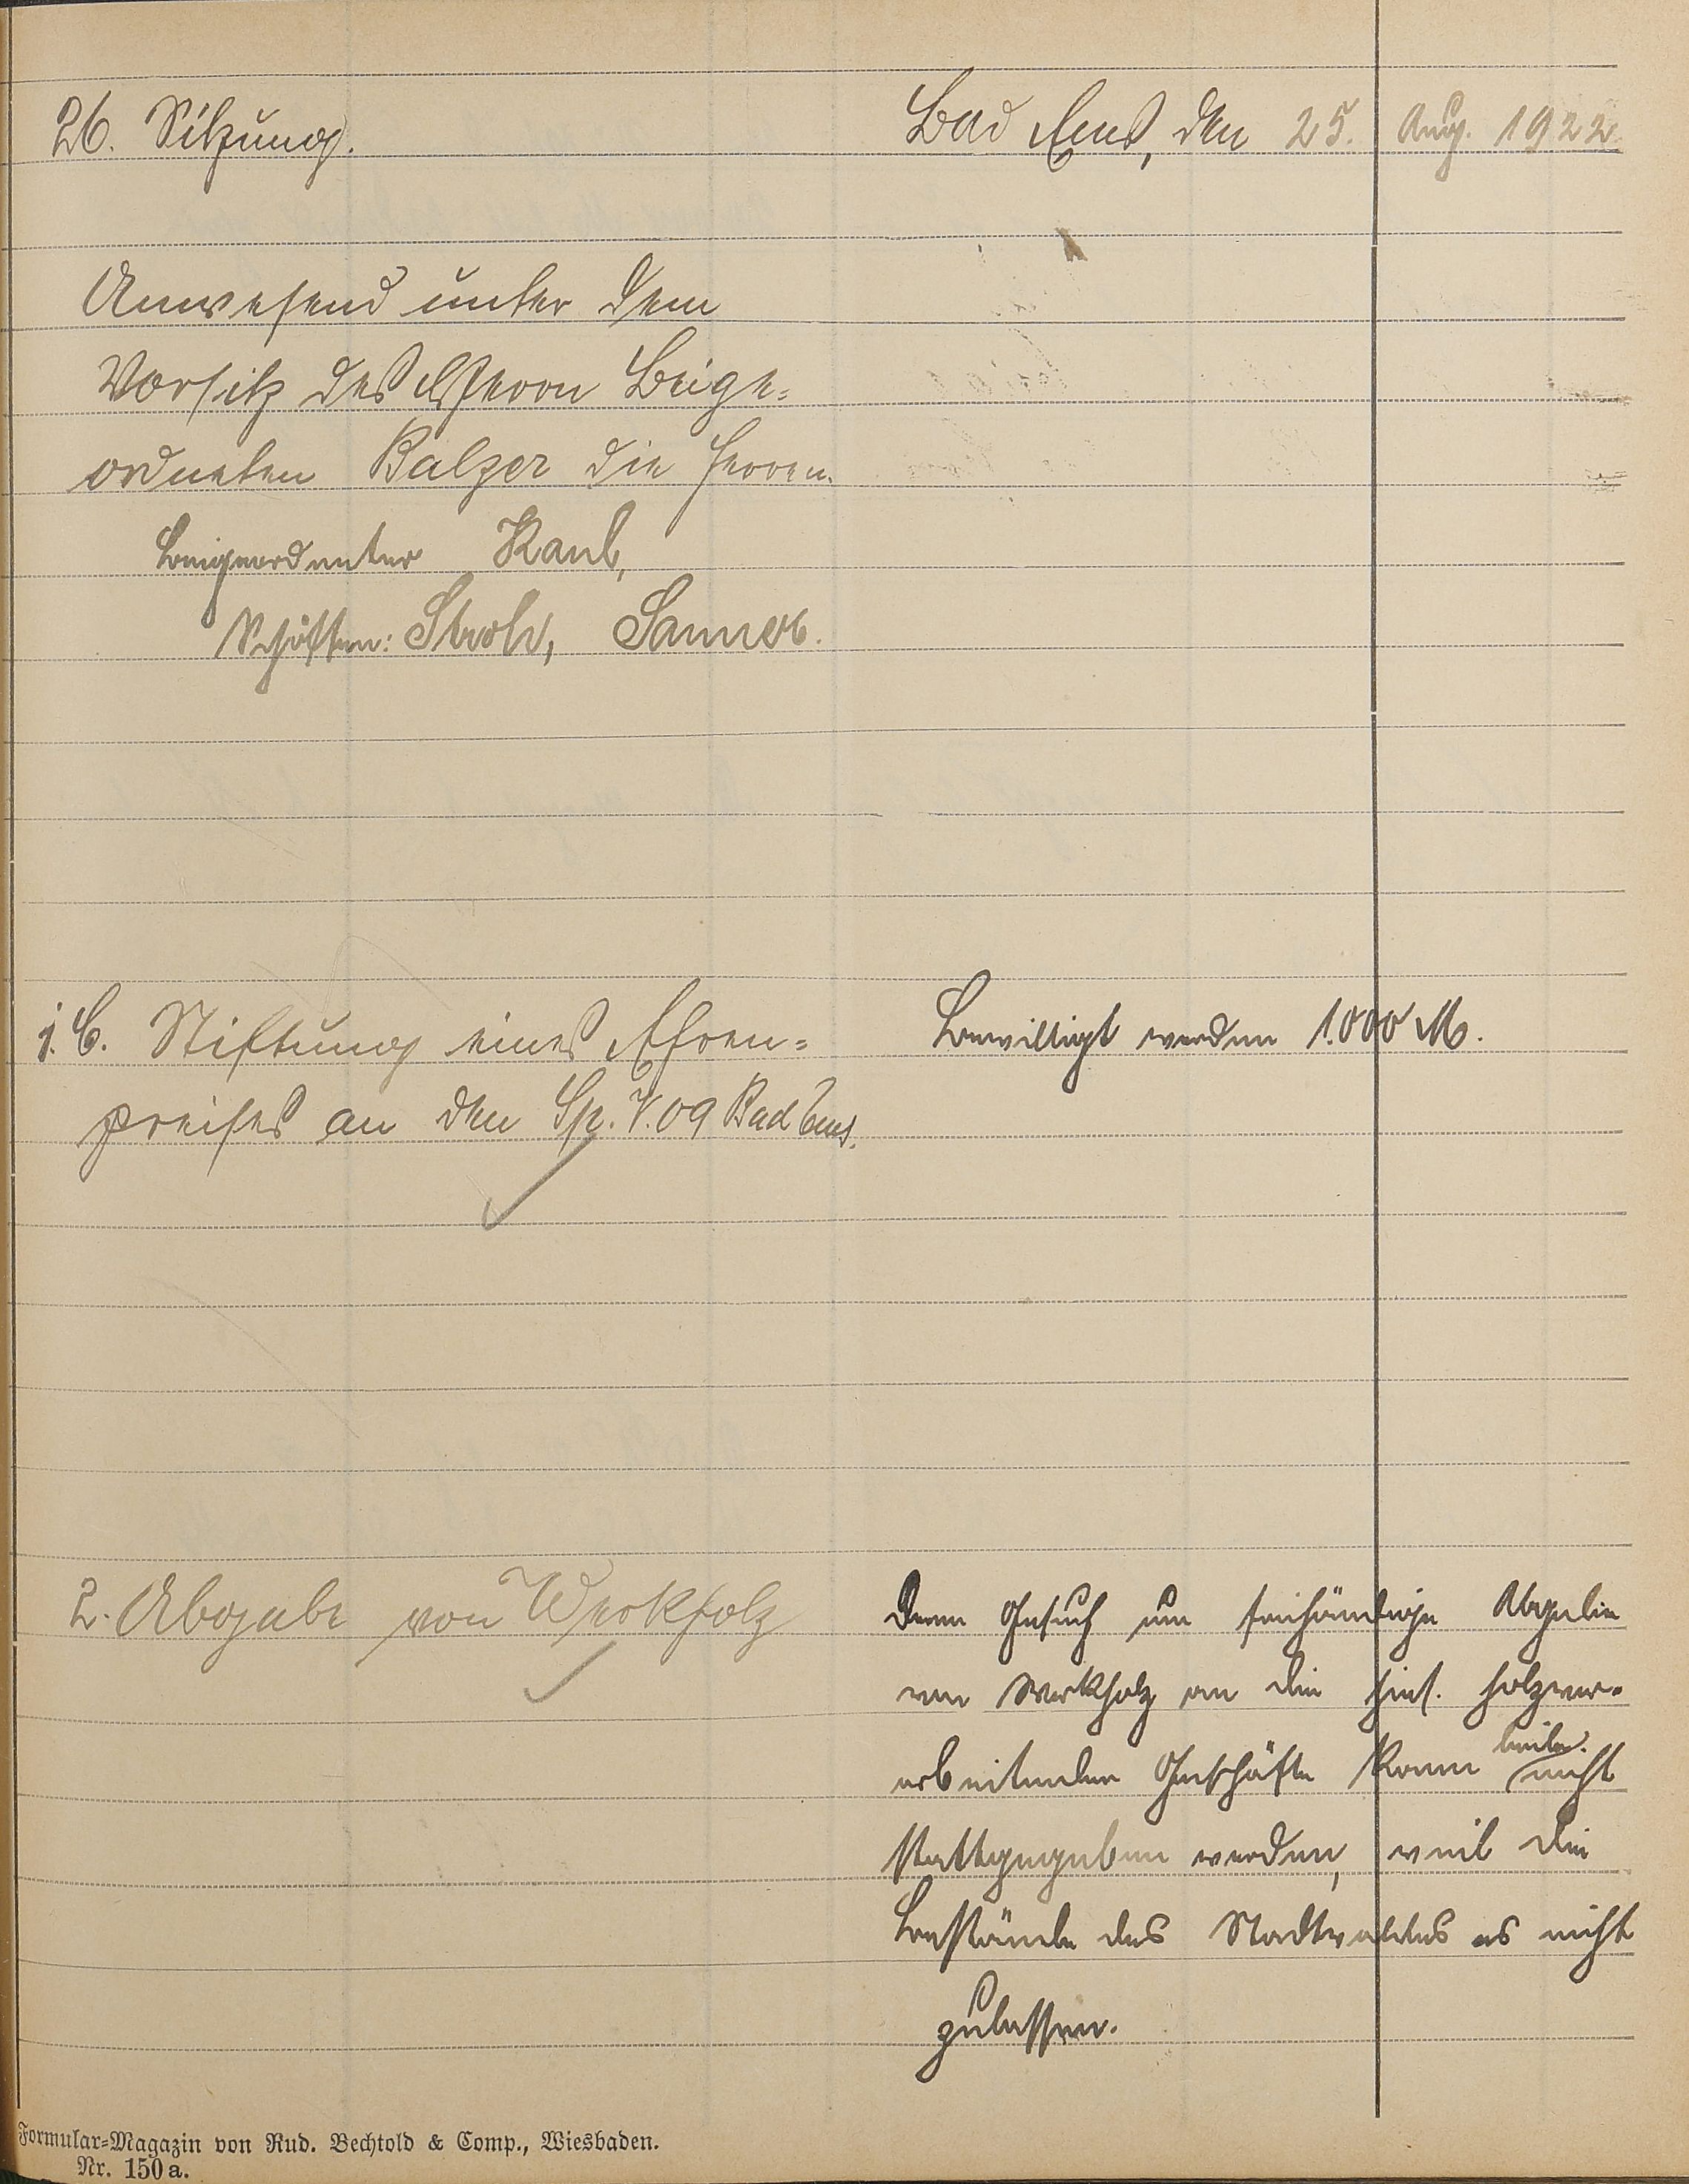 26. Sitzung.
Bad Ems, den 25. Aug. 1922
Anwesend unter dem
Vorsitz des Herrn Beige-
ordneten Balzer die Herren
Beigeordneter Kaul,
Schöffen: Stroh, Sanner.
1. C. Stiftung eines Ehren-
preises an den Sp. V. 09 Bad Ems.
Bewilligt werden 1.000 M.
2. Abgabe von Werkholz
Dem Gesuch um freihändige Abgabe
von Werkholz an die hies. holzver-
arbeitenden Geschäfte kann leider nicht
stattgegeben werden, weil die
Bestände des Stadtwaldes es nicht
zulassen.
Formular-Magazin von Rud. Bechtold & Comp., Wiesbaden.
Nr. 150a.